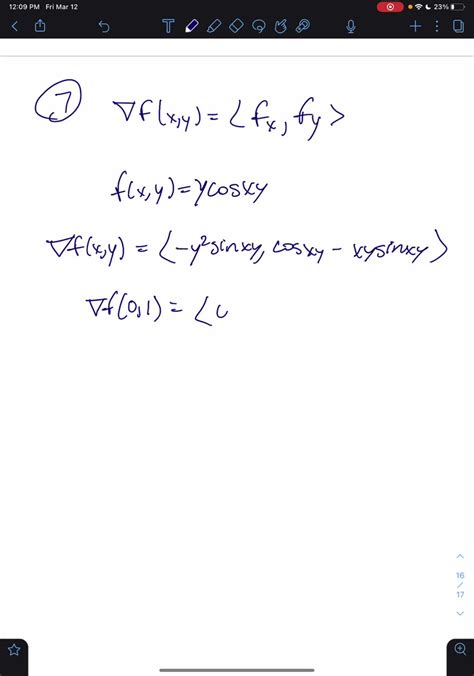 12:09 PM Fri Mar 12 23%
T
7 ∇f(x,y) = ⟨fx, fy⟩
f(x,y) = ycosxy
∇f(x,y) = ⟨-y²sinxy, cosxy - xysinxy⟩
∇f(0,1) = ⟨
16
/
17